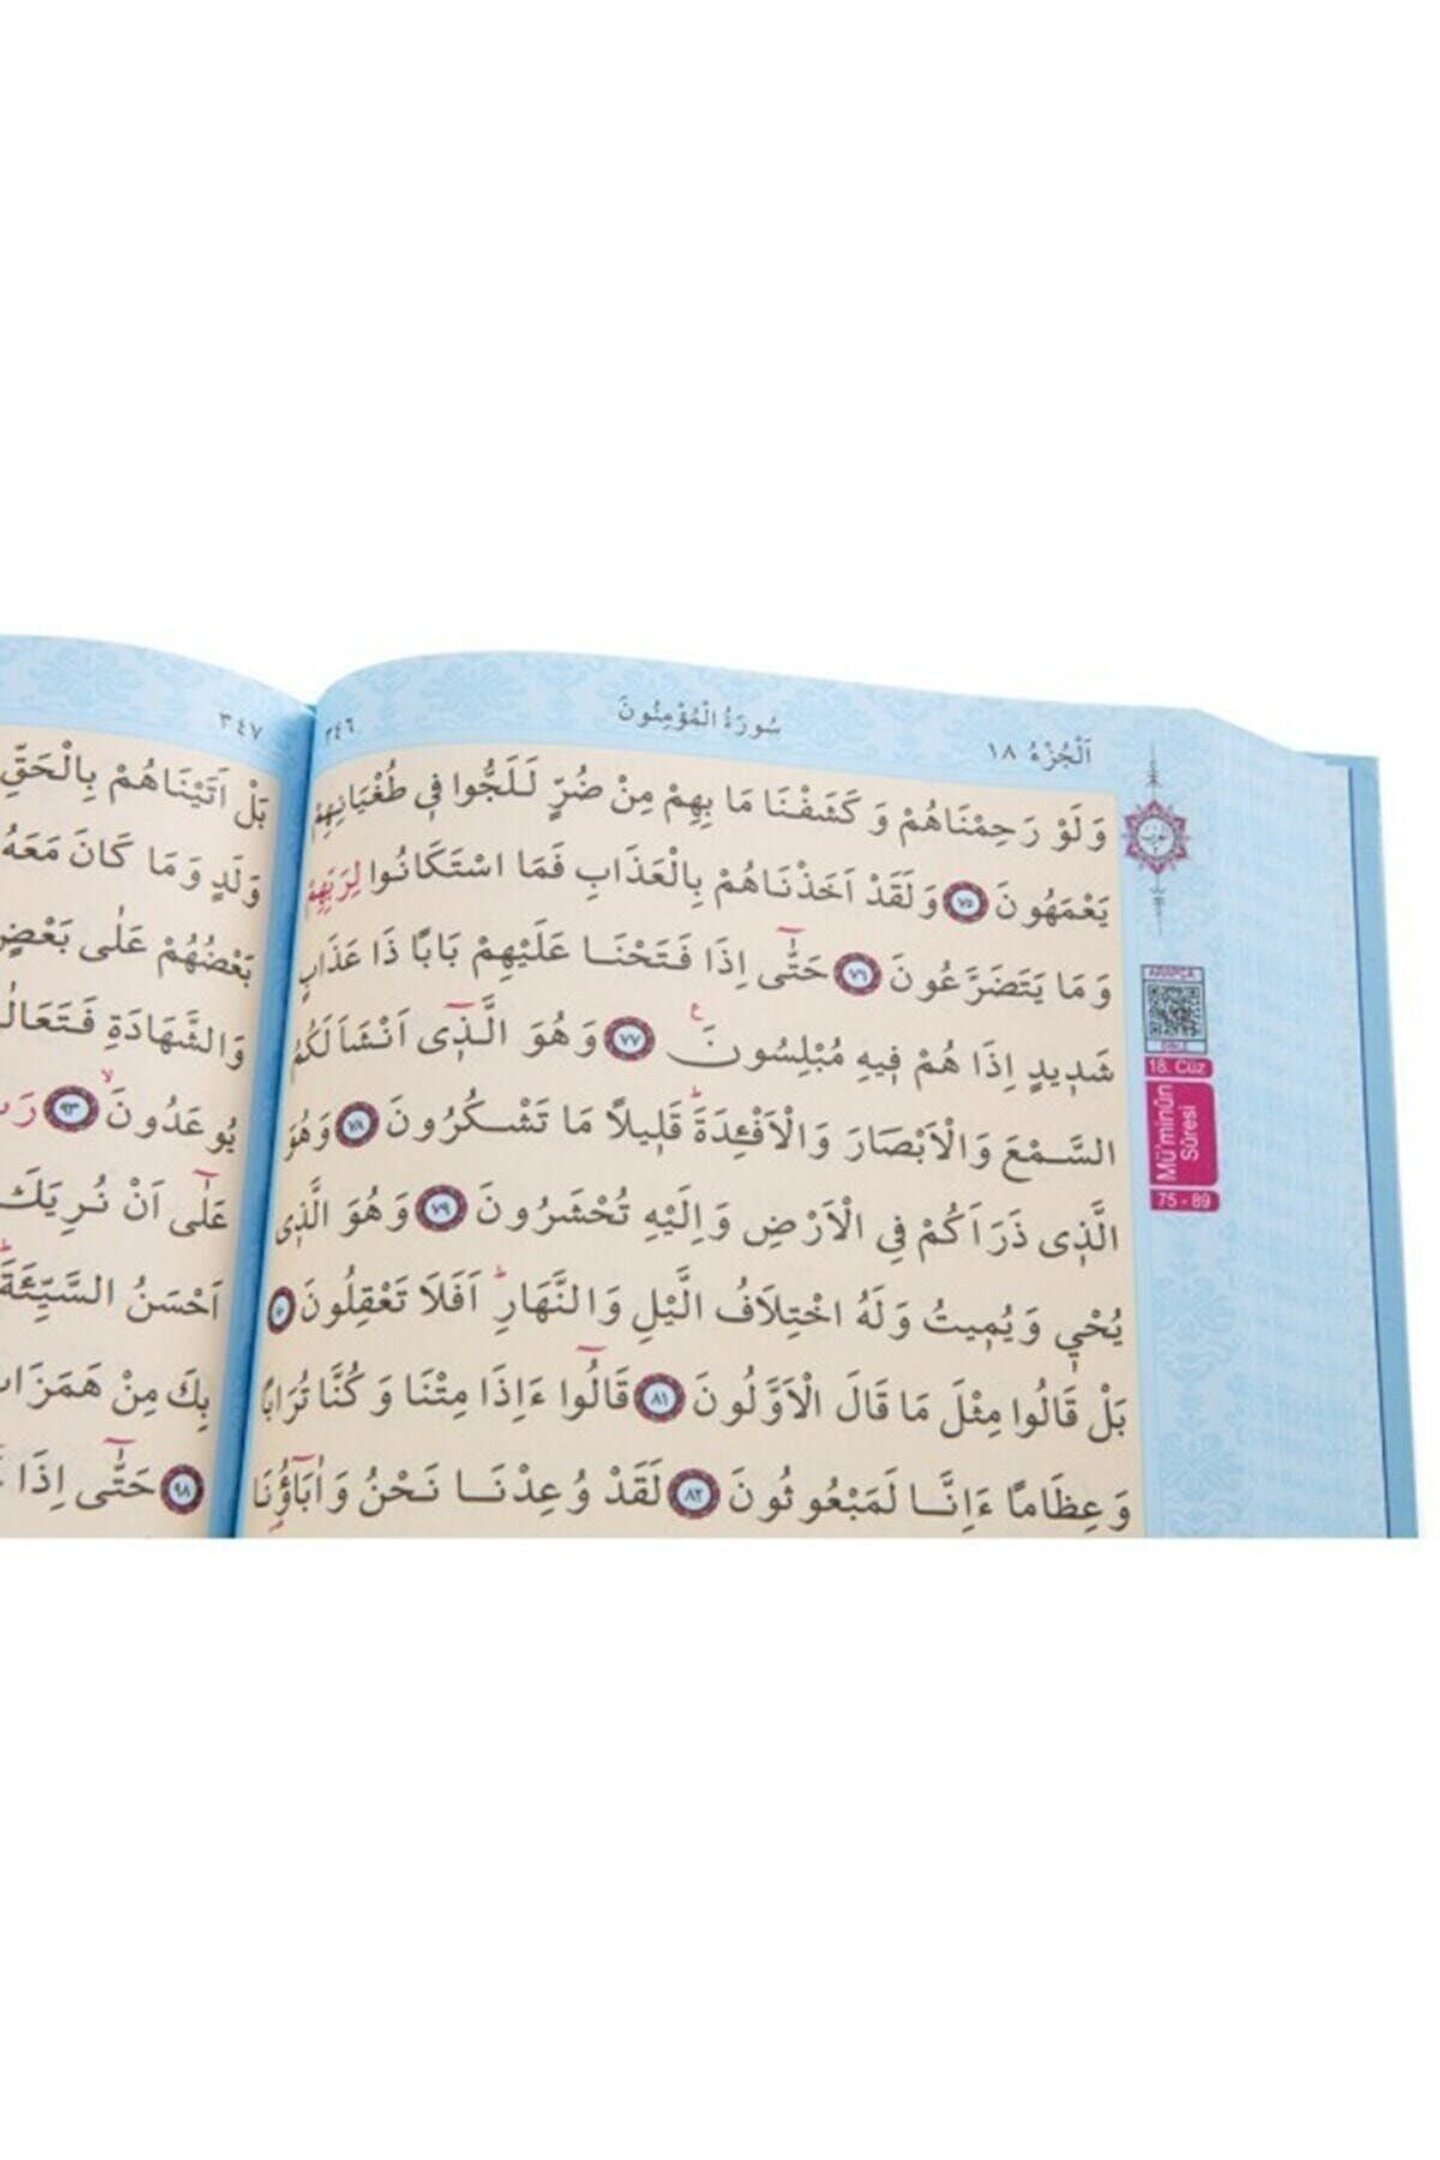 اَلْجُزْءُ ١٨
سُورَةُ الْمُؤْمِنُونَ
٣٤٦
وَلَوْ رَحِمْنَاهُمْ وَكَشَفْنَا مَا بِهِمْ مِنْ ضُرٍّ لَلَجُّوا فٖي طُغْيَانِهِمْ
يَعْمَهُونَ ٧٥ وَلَقَدْ اَخَذْنَاهُمْ بِالْعَذَابِ فَمَا اسْتَكَانُوا لِرَبِّهِمْ
وَمَا يَتَضَرَّعُونَ ٧٦ حَتّٰٓى اِذَا فَتَحْنَا عَلَيْهِمْ بَابًا ذَا عَذَابٍ
شَدٖيدٍ اِذَا هُمْ فٖيهِ مُبْلِسُونَ ٧٧ وَهُوَ الَّذٖٓى اَنْشَاَ لَكُمُ
السَّمْعَ وَالْاَبْصَارَ وَالْاَفْـِٔدَةَ قَلٖيلًا مَا تَشْكُرُونَ ٧٨ وَهُوَ
الَّذٖى ذَرَاَكُمْ فِي الْاَرْضِ وَاِلَيْهِ تُحْشَرُونَ ٧٩ وَهُوَ الَّذٖى
يُحْيٖ وَيُمٖيتُ وَلَهُ اخْتِلَافُ الَّيْلِ وَالنَّهَارِ اَفَلَا تَعْقِلُونَ
بَلْ قَالُوا مِثْلَ مَا قَالَ الْاَوَّلُونَ ٨١ قَالُٓوا ءَاِذَا مِتْنَا وَكُنَّا تُرَابًا
وَعِظَامًا ءَاِنَّا لَمَبْعُوثُونَ ٨٢ لَقَدْ وُعِدْنَا نَحْنُ وَاٰبَٓاؤُ۬نَا
ARAPÇA
18. Cüz
Mü'minûn
Sûresi
75 - 89
٣٤٧
بَلْ اَتَيْنَاهُمْ بِالْحَقِّ
وَلَدٍ وَمَا كَانَ مَعَهُ
بَعْضُهُمْ عَلٰى بَعْضٍ
وَالشَّهَادَةِ
يُوعَدُونَ ٩٣
عَلٰٓى اَنْ نُرِيَكَ
اَحْسَنُ السَّيِّئَةَ
بِكَ مِنْ
٩٨ حَتّٰٓى اِذَا